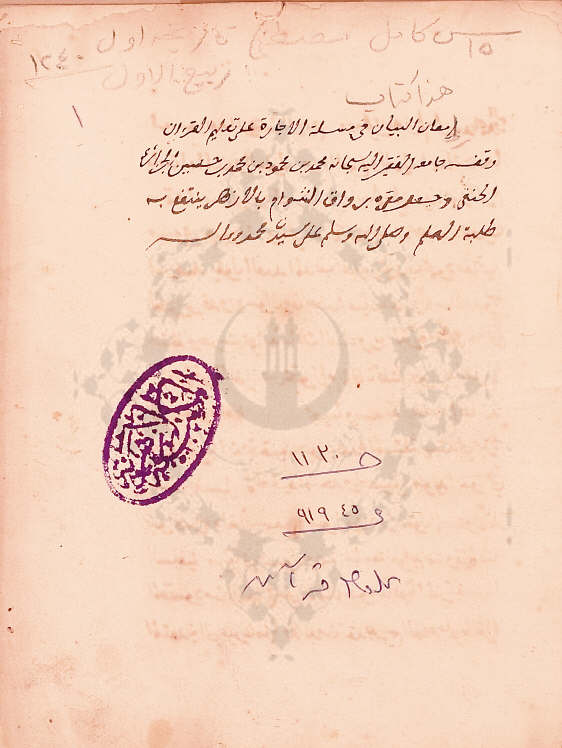 ١٢٤٠
ربيع الاول
١
هذا كتاب
إمعان البيان في مسئلة الاجارة على تعليم القرءان
وقفه جامعه الفقير اليه سبحانه محمد بن محمود بن محمد بن حسين الجزائرى
الحنفى وجعل مقره برواق الشوام بالازهر ينتفع به
طلبة العلم وصلى الله وسلم على سيدنا محمد وءاله
١١٢٠
٤٥ ٩١٩